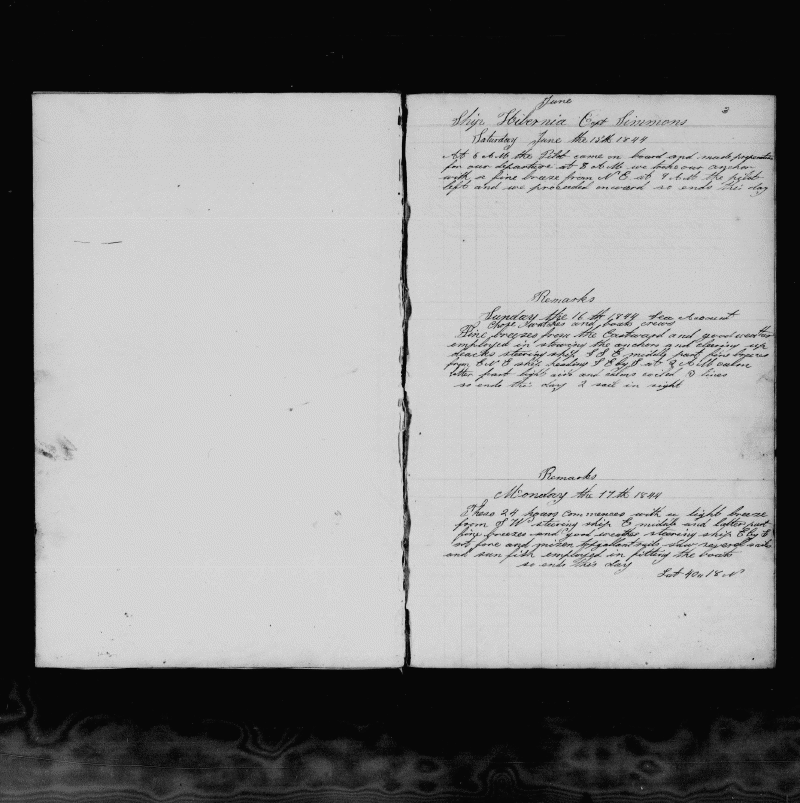 June
3
Ship Hibernia Capt Simmons
Saturday June the 15th 1844
At 6 A.M. the Pilot came on board and made preparation
for our departure at 8 A.M. we took our anchor
with a fine breeze from N E at 9 A.M. the pilot
left and we proceeded onward so ends this day
Remarks
Sunday the 16 th 1844 Sea Account
Chose watches and boats crews
Fine breezes from the Eastward and good weather
employed in stowing the anchors and clearing up
decks steering ship S E middle part fine breezes
from E N E ship heading S E by S at 2 A.M calm
latter part light airs and calms
so ends this day 2 sail in sight
Remarks
Monday the 17 th 1844
These 24 hours commences with a light breeze
from S W steering ship E middle and latter part
fine breezes and good weather steering ship E by S
set fore and mizen topgallantsails saw several sails
and sun fish employed in fitting the boats
so ends this day
Lat 40 18 N